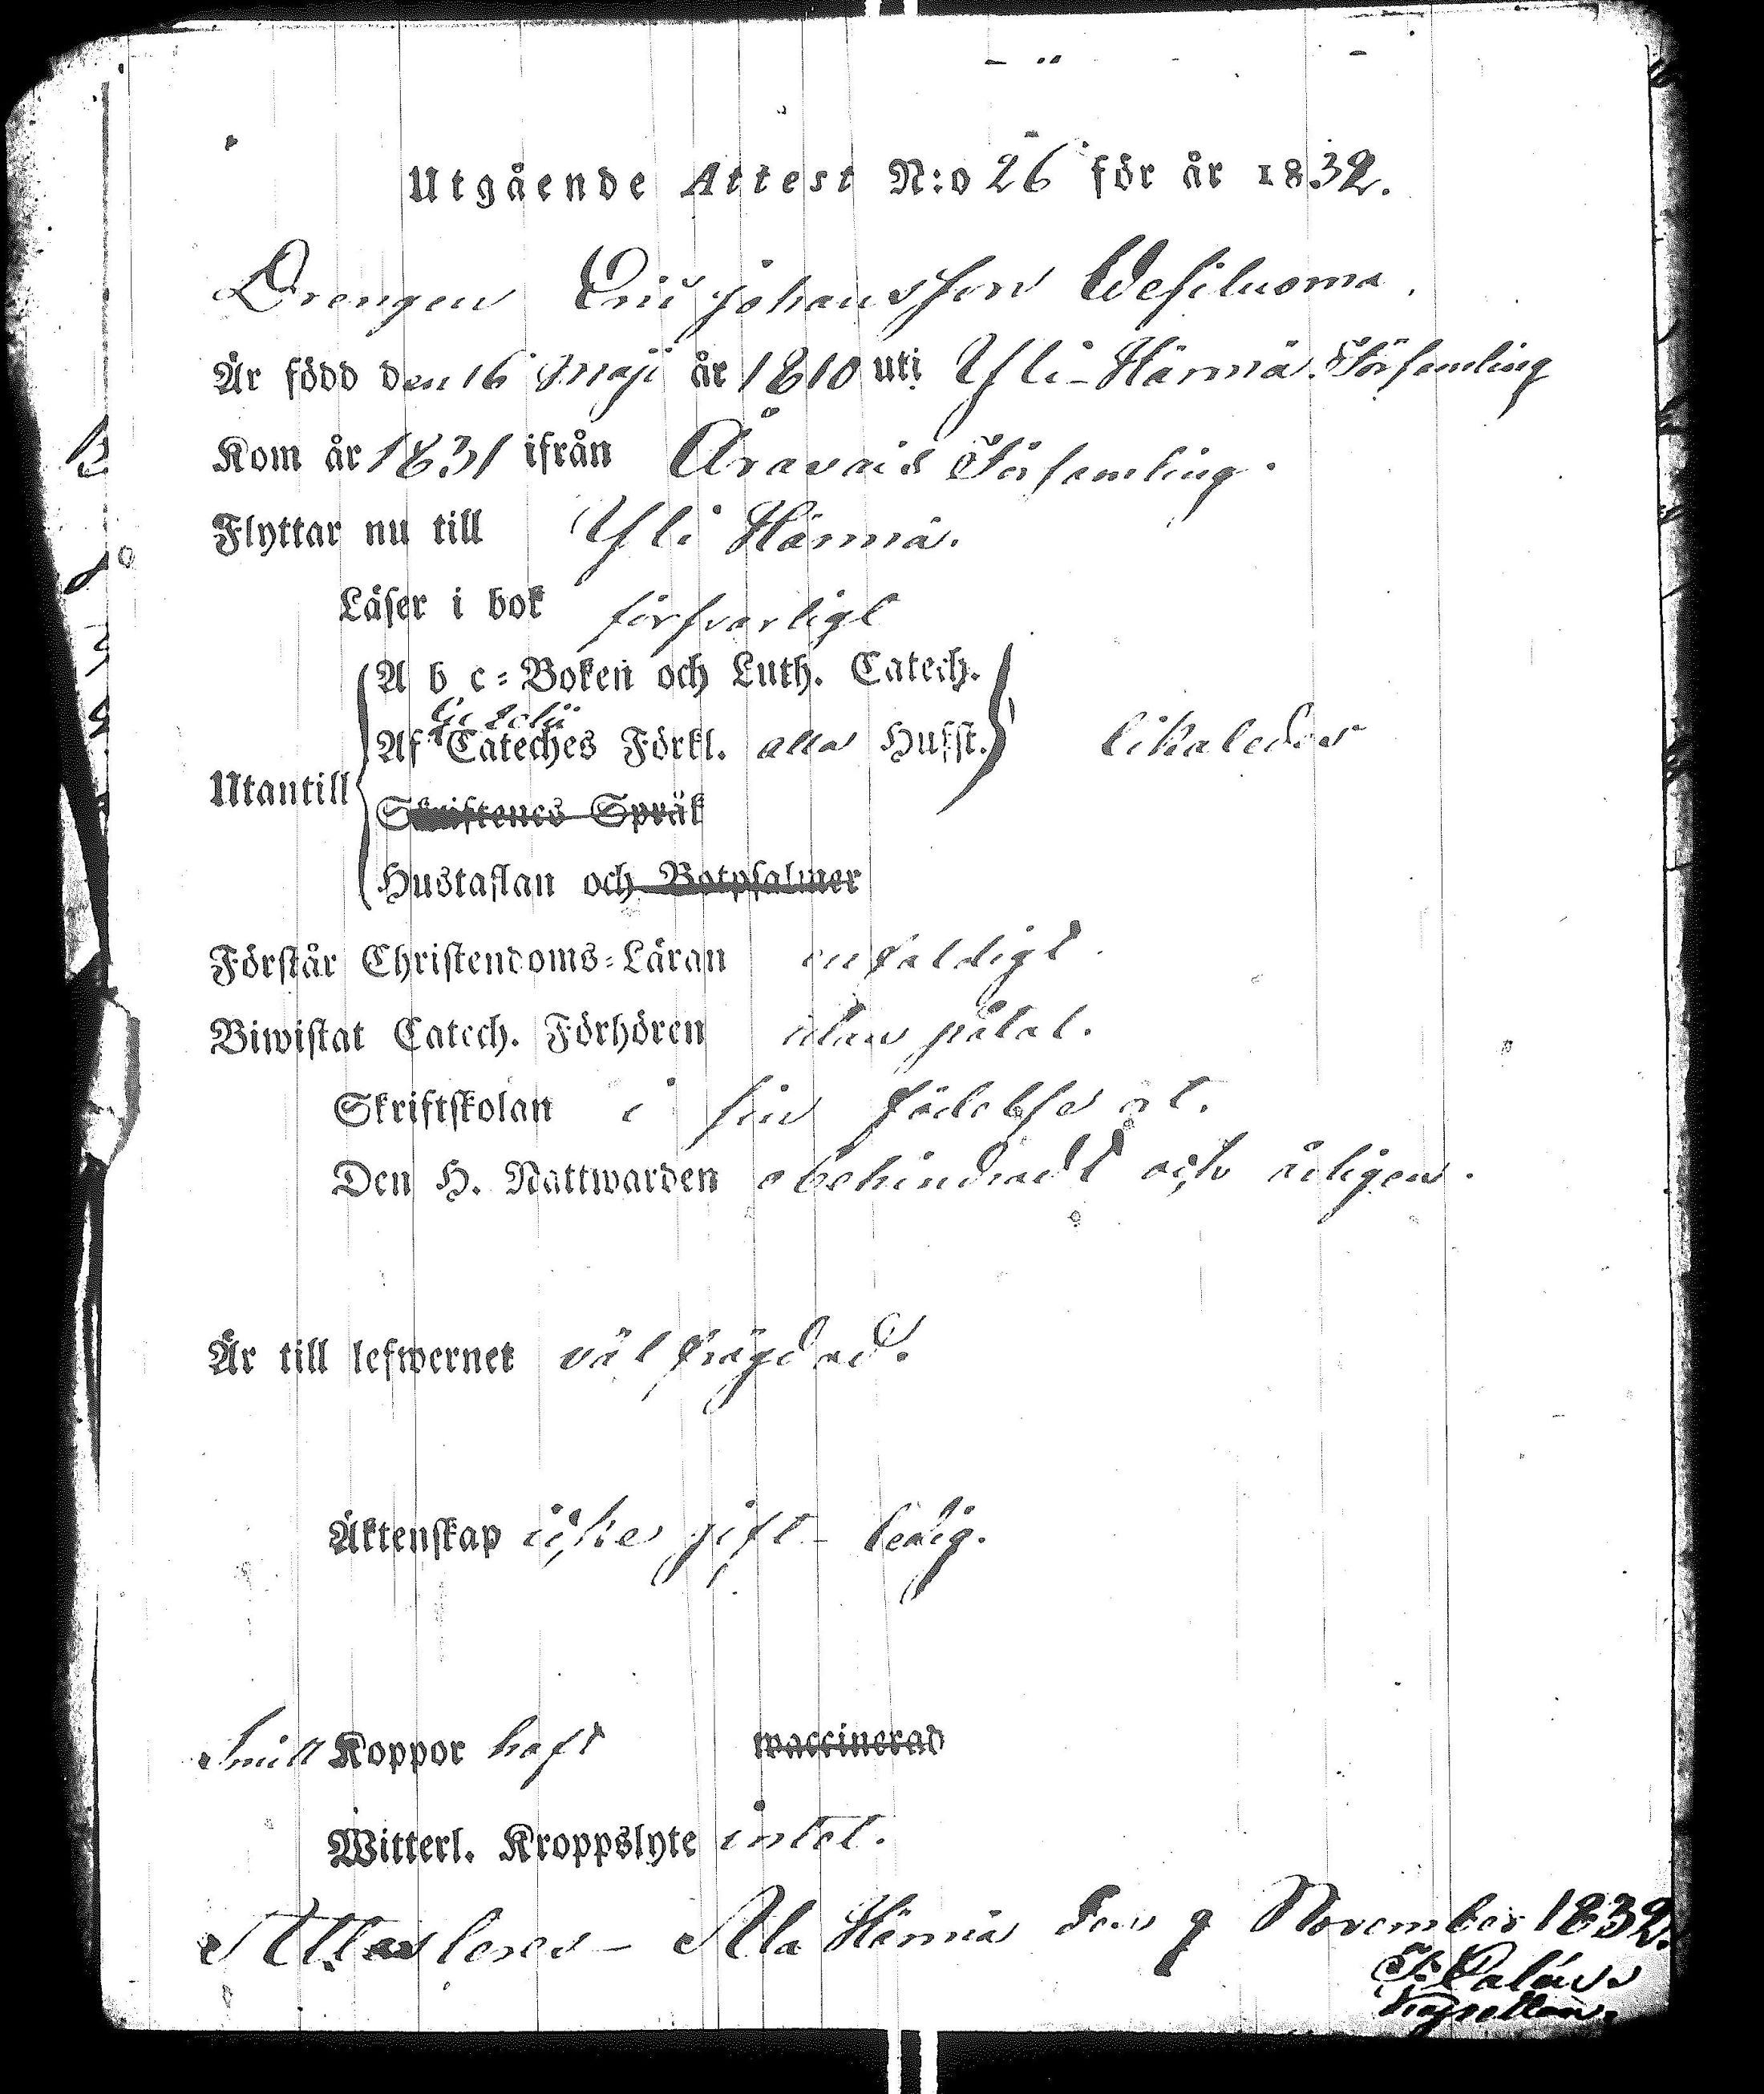 Utgående Attest N:o 26 för år 1832.
Drengen Eric Johansson Wesiluoma.
Är född den 16 Maji år 1810 uti Yli-Härmä Församling
Kom år 1831 ifrån Åravais Församling.
Flyttar nu till Yli Härmä.
Läser i bok försvarligt
A b c-Boken och Luth. Catech.
Af Cateches Förkl. alla Hufst. likaledes
Utantill
Skriftenes Språk
Hustaflan och Botpsalmer
Förstår Christendoms-Läran enfaldigt.
Biwistat Catech. Förhören utan påtal.
Skriftskolan i sin födelse ort.
Den H. Nattwarden obehindradt och årligen.
Är till lefwernet väl frägdad.
Äktenskap icke gift - ledig.
Koppor haft waccinerad
Witterl. Kroppslyte intet.
Attesteres - Ala Härmä den 9 November 1832.
Kapellan.